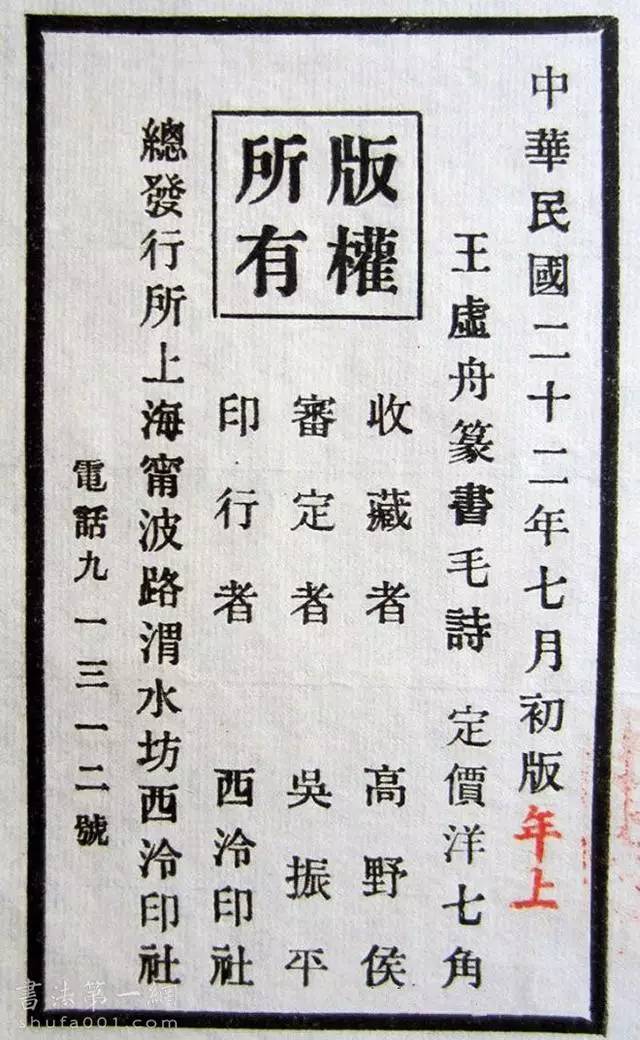 中華民國二十二年七月初版
年上
王虛舟篆書毛詩 定價洋七角
版權
所有
收藏者 高野侯
審定者 吳振平
印行者 西泠印社
總發行所上海甯波路渭水坊西泠印社
電話九一三一二號
書法第一網
shufa001.com